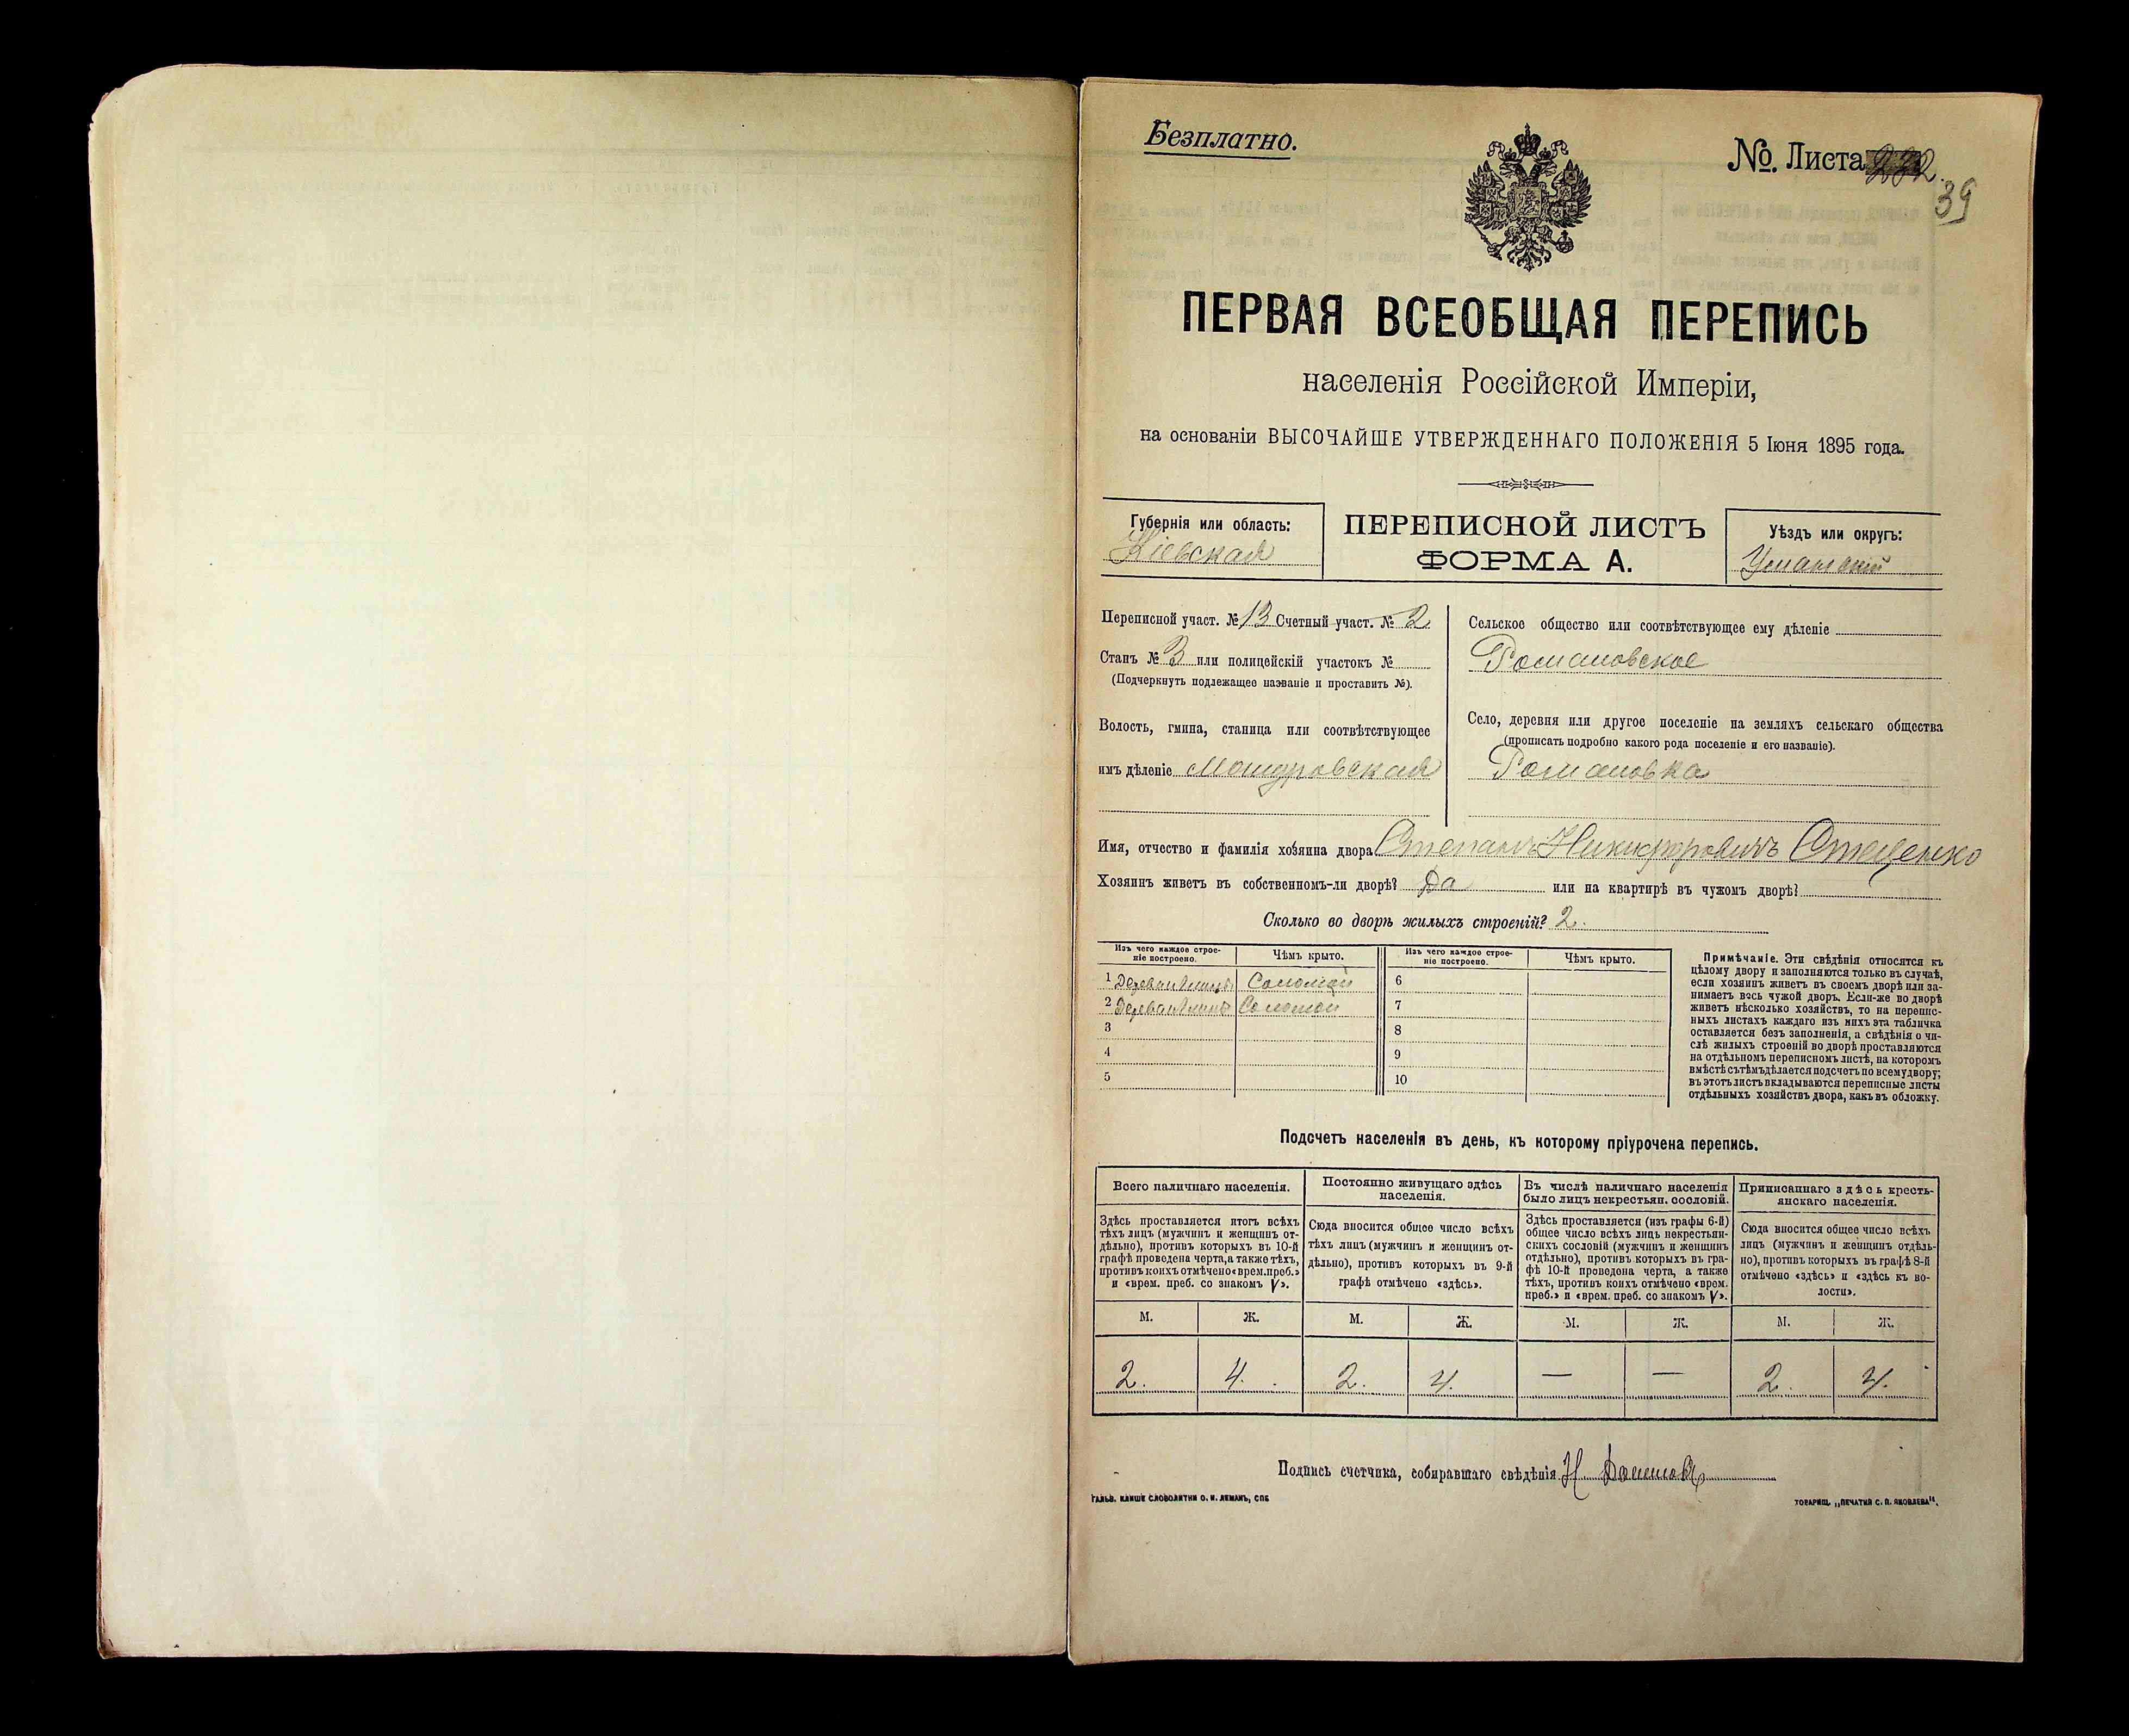 Безплатно.
№ Листа 232.
39
ПЕРВАЯ ВСЕОБЩАЯ ПЕРЕПИСЬ
населенія Россійской Имперіи,
на основаніи ВЫСОЧАЙШЕ УТВЕРЖДЕННАГО ПОЛОЖЕНІЯ 5 Іюня 1895 года.
Губернія или область:
Кіевская
ПЕРЕПИСНОЙ ЛИСТЪ
ФОРМА А.
Уѣздъ или округъ:
Уманскій
Переписной участ. № 13 Счетный участ. № 2
Станъ № 3 или полицейскій участокъ №
(Подчеркнуть подлежащее названіе и проставить №).
Волость, гмина, станица или соотвѣтствующее
имъ дѣленіе
Сельское общество или соотвѣтствующее ему дѣленіе
Романовское
Село, деревня или другое поселеніе на земляхъ сельскаго общества
(прописать подробно какого рода поселеніе и его названіе).
Романовка
Имя, отчество и фамилія хозяина двора Степанъ Никифоровичъ Стеценко
Хозяинъ живетъ въ собственномъ-ли дворѣ? Да или на квартирѣ въ чужомъ дворѣ?
Сколько во дворѣ жилыхъ строеній? 2.
Изъ чего каждое строе-
ніе построено.
Чѣмъ крыто.
Изъ чего каждое строе-
ніе построено.
Чѣмъ крыто.
1 Соломой
2 Соломой
3
4
5
6
7
8
9
10
Примѣчаніе. Эти свѣдѣнія относятся къ
цѣлому двору и заполняются только въ случаѣ,
если хозяинъ живетъ въ своемъ дворѣ или за-
нимаетъ весь чужой дворъ. Если-же во дворѣ
живетъ нѣсколько хозяйствъ, то на перепис-
ныхъ листахъ каждаго изъ нихъ эта табличка
оставляется безъ заполненія, а свѣдѣнія о чи-
слѣ жилыхъ строеній во дворѣ проставляются
на отдѣльномъ переписномъ листѣ, на которомъ
вмѣстѣ съ тѣмъ дѣлается подсчетъ по всему двору;
въ этотъ листъ вкладываются переписные листы
отдѣльныхъ хозяйствъ двора, какъ въ обложку.
Подсчетъ населенія въ день, къ которому пріурочена перепись.
Всего наличнаго населенія.
Здѣсь проставляется итогъ всѣхъ
тѣхъ лицъ (мужчинъ и женщинъ от-
дѣльно), противъ которыхъ въ 10-й
графѣ проведена черта, а также тѣхъ,
противъ коихъ отмѣчено «врем. преб.»
и «врем. преб. со знакомъ V».
Постоянно живущаго здѣсь
населенія.
Сюда вносится общее число всѣхъ
тѣхъ лицъ (мужчинъ и женщинъ от-
дѣльно), противъ которыхъ въ 9-й
графѣ отмѣчено «здѣсь».
Въ числѣ наличнаго населенія
было лицъ некрестьян. сословій.
Здѣсь проставляется (изъ графы 6-й)
общее число всѣхъ лицъ некрестьян-
скихъ сословій (мужчинъ и женщинъ
отдѣльно), противъ которыхъ въ гра-
фѣ 10-й проведена черта, а также
тѣхъ, противъ коихъ отмѣчено «врем.
преб.» и «врем. преб. со знакомъ V».
Приписаннаго здѣсь кресть-
янскаго населенія.
Сюда вносится общее число всѣхъ
лицъ (мужчинъ и женщинъ отдѣль-
но), противъ которыхъ въ графѣ 8-й
отмѣчено «здѣсь» и «здѣсь къ во-
лости».
М. Ж. М. Ж. М. Ж. М. Ж.
2. 4. 2. 4. — — 2. 4.
Подпись счетчика, собиравшаго свѣдѣнія Н
ГАЛЬВ. КЛИШЕ СЛОВОЛИТНИ О. И. ЛЕМАНЪ, СПБ
ТОВАРИЩ. „ПЕЧАТНЯ С. П. ЯКОВЛЕВА“.